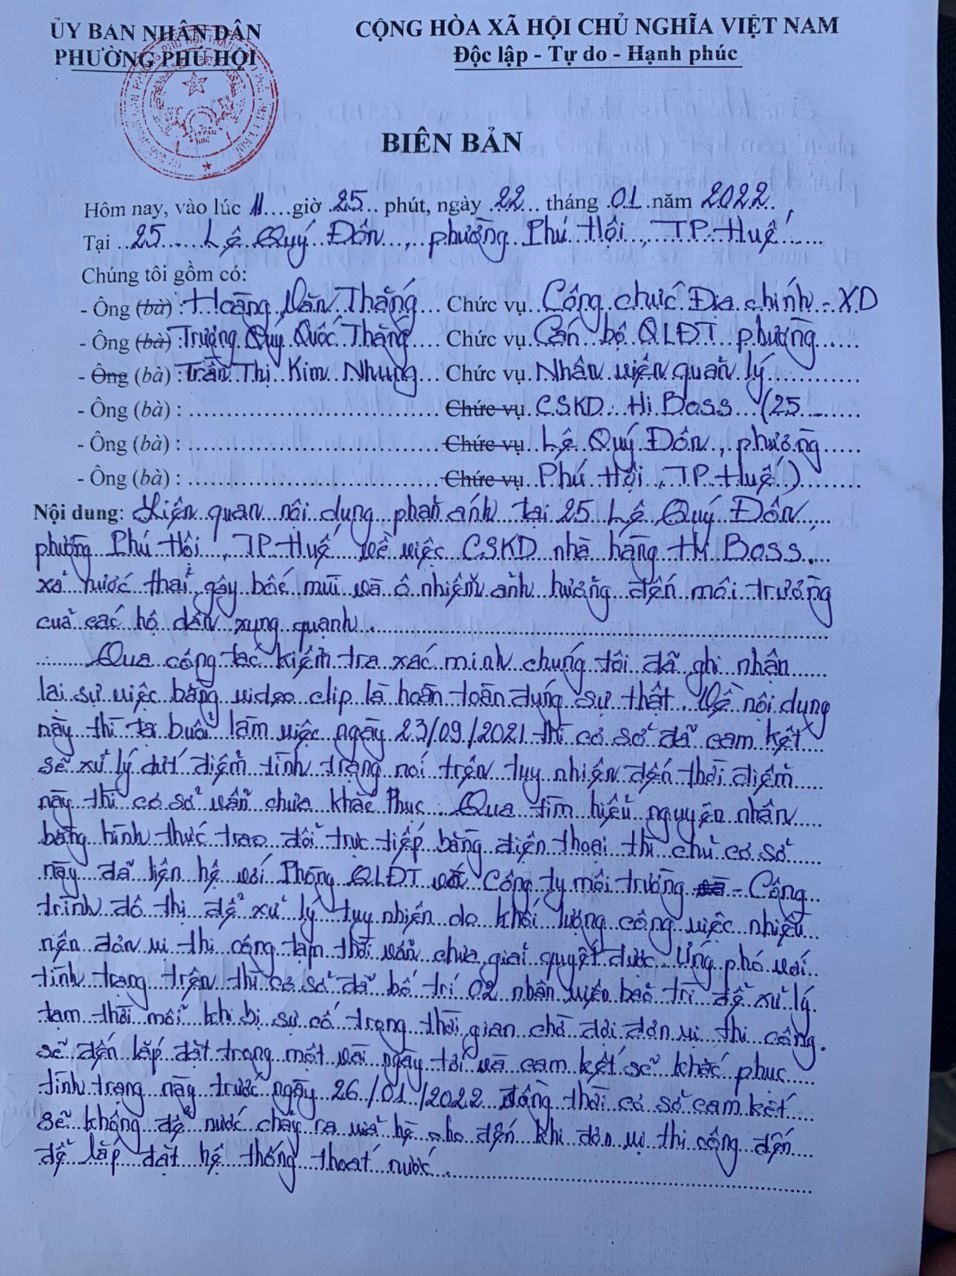 ỦY BAN NHÂN DÂN
PHƯỜNG PHÚ HỘI
CỘNG HÒA XÃ HỘI CHỦ NGHĨA VIỆT NAM
Độc lập - Tự do - Hạnh phúc
BIÊN BẢN
Hôm nay, vào lúc 11 giờ 25 phút, ngày 22 tháng 01 năm 2022.
Tại 25 Lê Quý Đôn, phường Phú Hội, TP. Huế
Chúng tôi gồm có:
- Ông (bà) : Hoàng Văn Thắng Chức vụ Công chức Địa chính - XD
- Ông (bà) : Trương Quý Quốc Thắng Chức vụ Cán bộ QLĐT phường
- Ông (bà) : Trần Thị Kim Nhung Chức vụ Nhân viên quản lý
- Ông (bà) : Chức vụ CSKD Hi Boss (25
- Ông (bà) : Chức vụ Lê Quý Đôn, phường
- Ông (bà) : Chức vụ Phú Hội, TP. Huế)
Nội dung: Liên quan nội dung phản ánh tại 25 Lê Quý Đôn,
phường Phú Hội, TP. Huế về việc CSKD nhà hàng Hi Boss
xả nước thải gây bốc mùi và ô nhiễm ảnh hưởng đến môi trường
của các hộ dân xung quanh.
Qua công tác kiểm tra xác minh chúng tôi đã ghi nhận
lại sự việc bằng video clip là hoàn toàn đúng sự thật. Về nội dung
này thì tại buổi làm việc ngày 23/09/2021 thì cơ sở đã cam kết
sẽ xử lý dứt điểm tình trạng nói trên tuy nhiên đến thời điểm
này thì cơ sở vẫn chưa khắc phục. Qua tìm hiểu nguyên nhân
bằng hình thức trao đổi trực tiếp bằng điện thoại thì chủ cơ sở
này đã liên hệ với Phòng QLĐT và Công ty môi trường - Công
trình đô thị để xử lý tuy nhiên do khối lượng công việc nhiều
nên đơn vị thi công tạm thời vẫn chưa giải quyết được. Ứng phó với
tình trạng trên thì cơ sở đã bố trí 02 nhân viên bảo trì để xử lý
tạm thời mỗi khi bị sự cố trong thời gian chờ đợi đơn vị thi công.
sẽ đến lắp đặt trong một vài ngày tới và cam kết sẽ khắc phục
tình trạng này trước ngày 26/01/2022 đồng thời cơ sở cam kết
sẽ không để nước chảy ra vỉa hè cho đến khi đơn vị thi công đến
để lắp đặt hệ thống thoát nước.